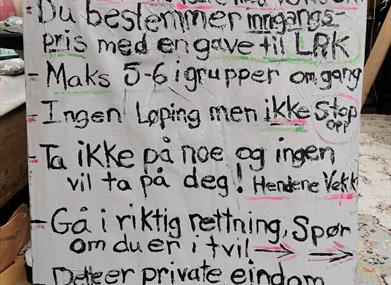 - Du bestemmer inngangs-
pris med en gave til LRK
- Maks 5-6 i grupper om gang
- Ingen Løping men ikke Stopp opp
- Ta ikke på noe og ingen
vil ta på deg! Hendene Vekk
- Gå i riktig rettning, Spør
om du er i tvil →→
- Dette er private eindom